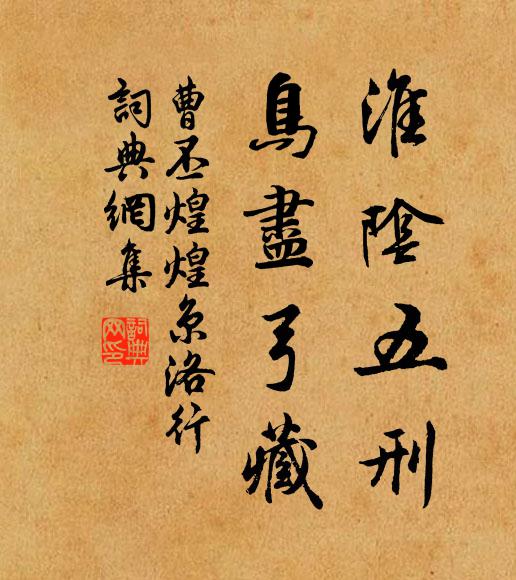 淮陰五刑
鳥盡弓藏
曹丕煌煌京洛行
詞典網集
詞典
双印